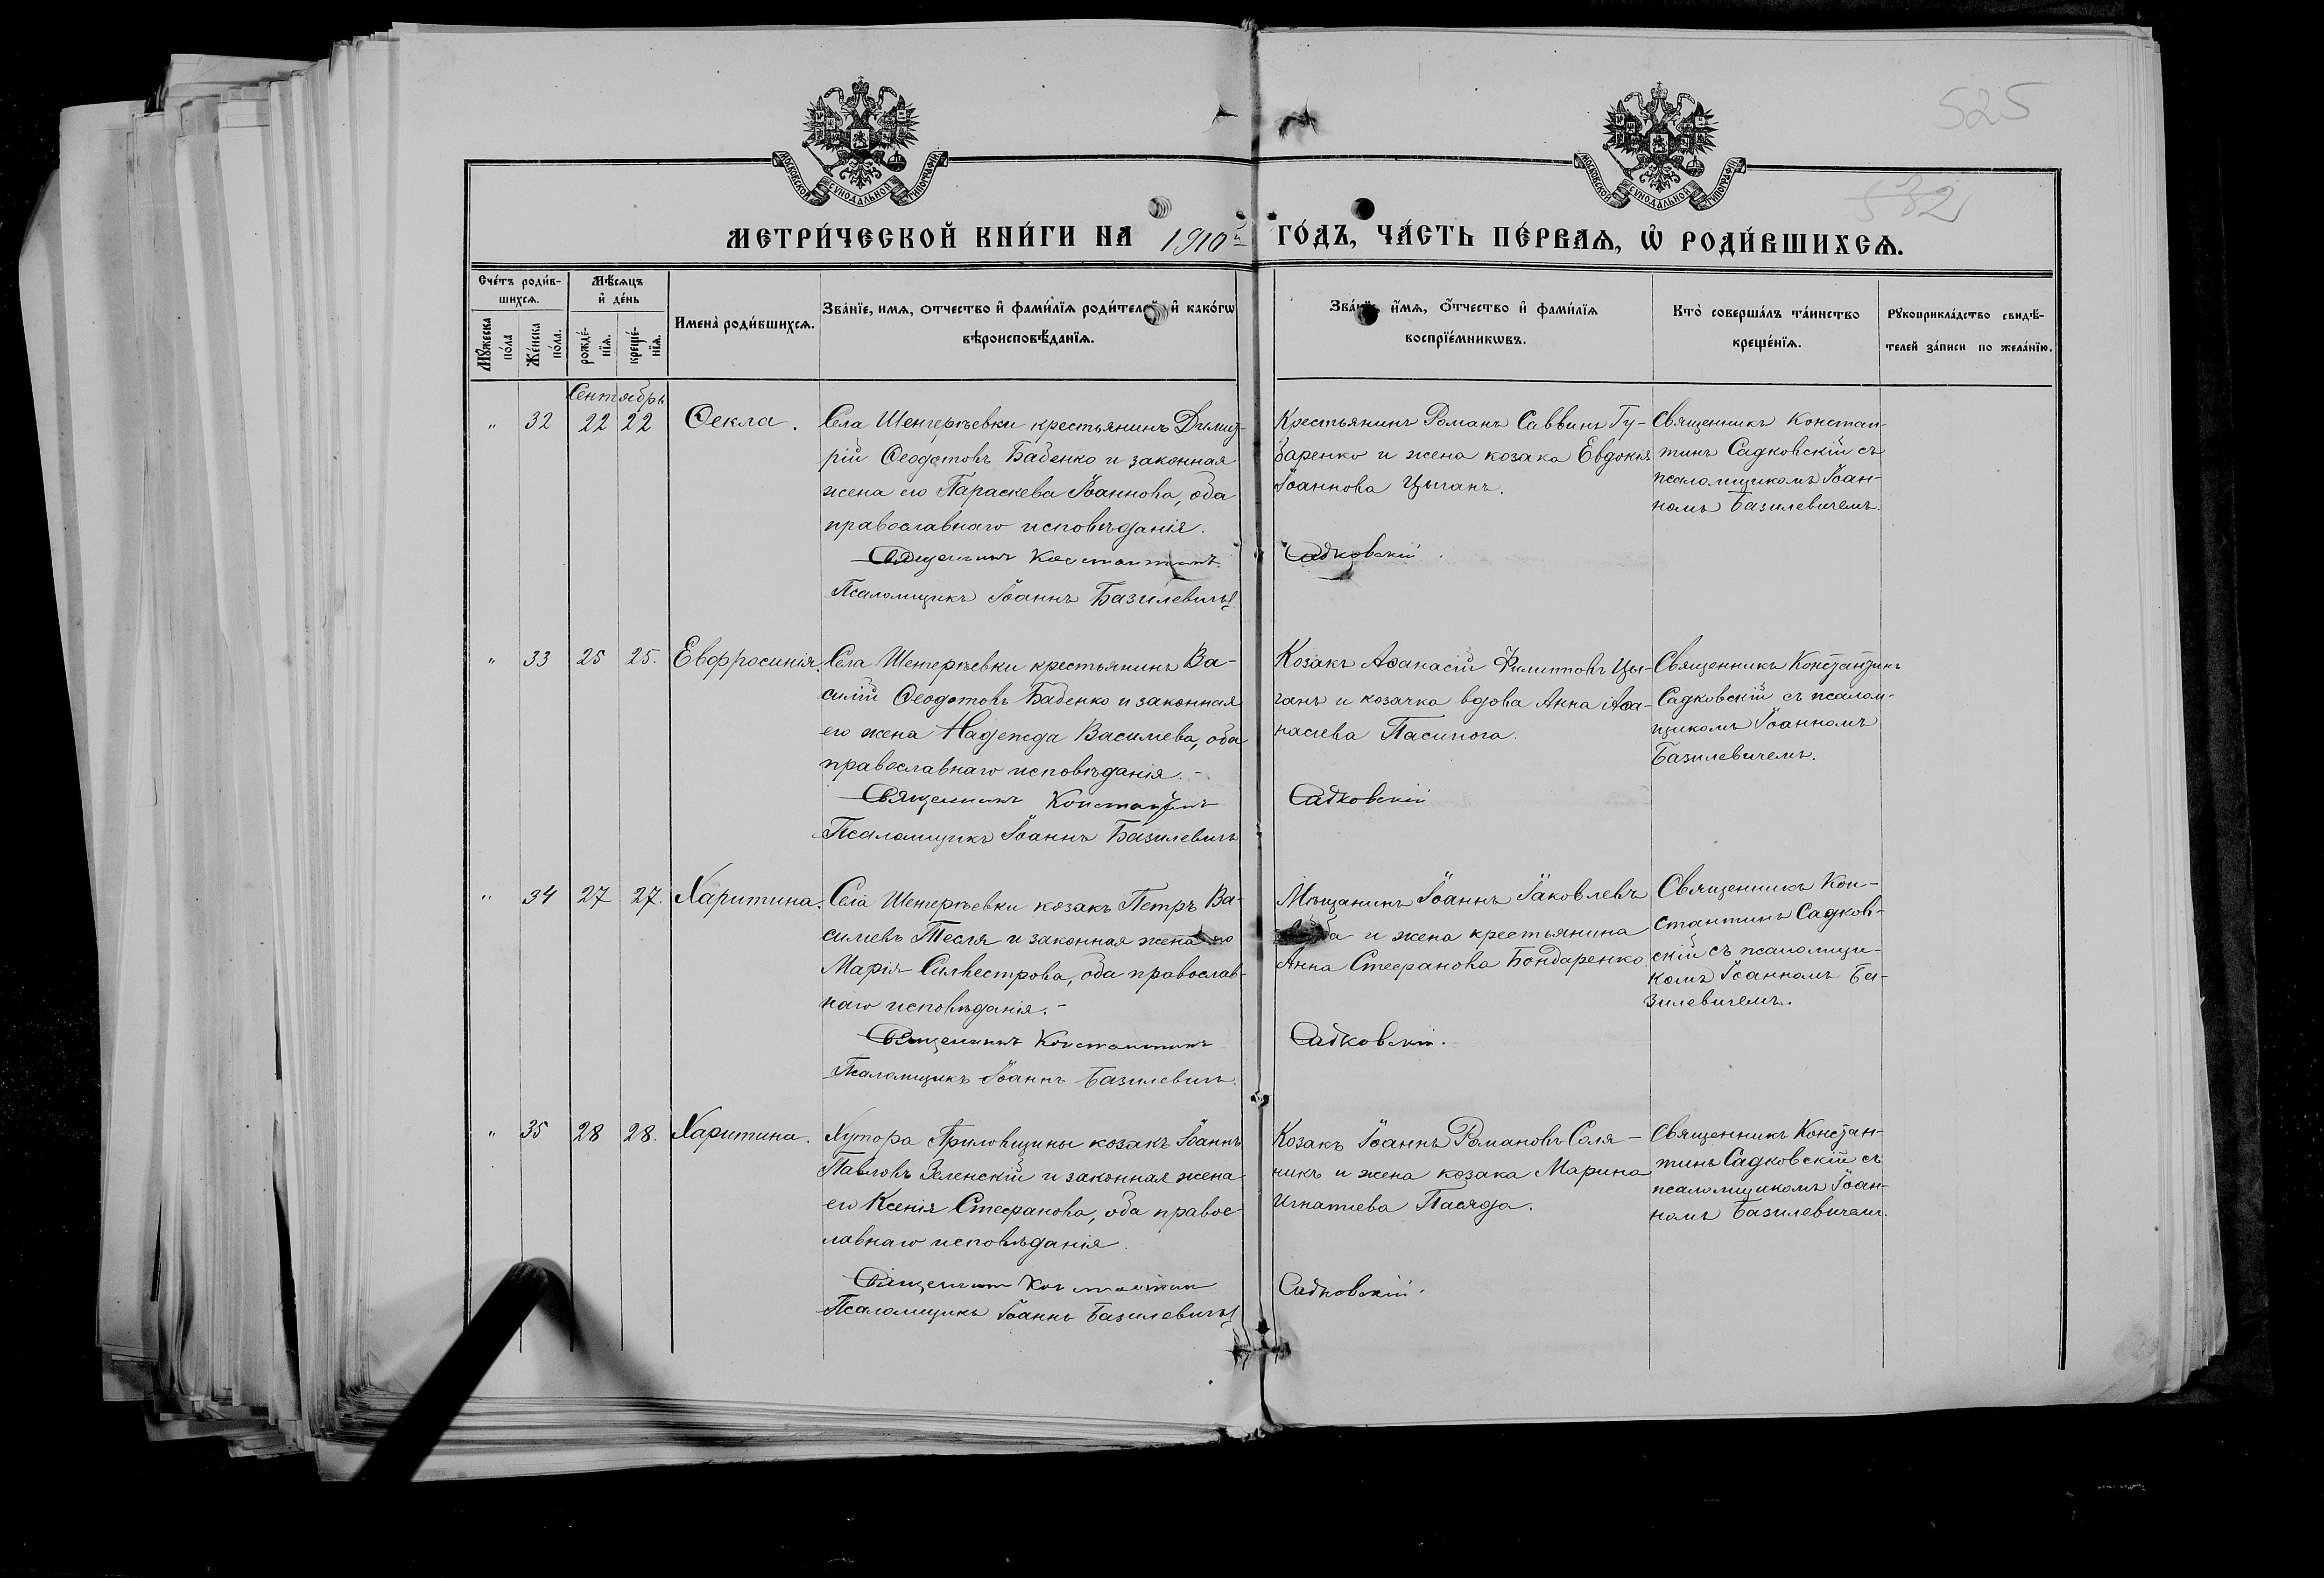 525
532
МОСКОВСКОЙ СУНОДАЛЬНОЙ ТИПОГРАФІИ
МОСКОВСКОЙ СУНОДАЛЬНОЙ ТИПОГРАФІИ
МЕТРИ́ЧЕСКОЙ КНИ́ГИ НА 1910й ГО́ДЪ, ЧА́СТЬ ПЕ́РВАѦ, Ѡ҆ РОДИ́ВШИХСѦ.
Сче́тъ роди́в-
шихсѧ.
Мꙋ́жеска
по́ла
Же́нска
по́ла.
Мѣ́сѧцъ
и҆ де́нь
рожде́-
нїѧ.
креще́-
нїѧ.
Имена̀ роди́вшихсѧ.
Зва́нїе, имѧ, отчество и҆ фами́лїѧ роди́телей и҆ како́гѡ
вѣроисповѣ́данїѧ.
Зва́нїе, и҆́мѧ, о҆́тчество и҆ фами́лїѧ
воспрїе́мникѡвъ.
Кто̀ соверша́лъ та́инство
креще́нїѧ.
Рꙋкоприкла́дство свидѣ́-
телей за́писи по жела́нїю.
Сентябрь
" 32 22 22 Ѳекла.
Села Шенгерѣевки крестьянинъ Димит-
рій Ѳеодотовъ Бабенко и законная
жена его Параскева Іоаннова, оба
православнаго исповѣданія.
Священникъ Константинъ
Псаломщикъ Іоаннъ Базилевичъ
Крестьянинъ Романъ Саввинъ Гу-
баренко и жена козака Евдокія
Іоаннова Цыганъ.
Садковскій.
Священникъ Констан-
тинъ Садковскій съ
псаломщикомъ Іоан-
номъ Базилевичемъ.
" 33 25 25. Евфросинія.
Села Шенгерѣевки крестьянинъ Ва-
силій Ѳеодотовъ Бабенко и законная
его жена Надежда Василіева, оба
православнаго исповѣданія.-
Священникъ Константинъ
Псаломщикъ Іоаннъ Базилевичъ
Козакъ Аѳанасій Филипповъ Цы-
ганъ и козачка вдова Анна Аѳа-
насіева Пасипога.
Садковскій
Священникъ Константинъ
Садковскій съ псалом-
щикомъ Іоанномъ
Базилевичемъ.
" 34 27 27. Харитина.
Села Шенгерѣевки козакъ Петръ Ва-
силіевъ Тесля и законная жена его
Марія Силвестрова, оба православ-
наго исповѣданія.-
Священникъ Константинъ
Псаломщикъ Іоаннъ Базилевичъ.
Мѣщанинъ Іоаннъ Іаковлевъ
и жена крестьянина
Анна Стефанова Бондаренко.
Садковскій.
Священникъ Кон-
стантинъ Садков-
скій съ псаломщи-
комъ Іоанномъ Ба-
зилевичемъ.
" 35 28 28. Харитина.
Хутора козакъ Іоаннъ
Павловъ Зеленскій и законная жена
его Ксенія Стефанова, оба правос-
лавнаго исповѣданія.
Священникъ Константинъ
Псаломщикъ Іоаннъ Базилевичъ
Козакъ Іоаннъ Романовъ Соля-
никъ и жена козака Марина
Игнатіева Пасяда.
Садковскій.
Священникъ Констан-
тинъ Садковскій съ
псаломщикомъ Іоан-
номъ Базилевичемъ.